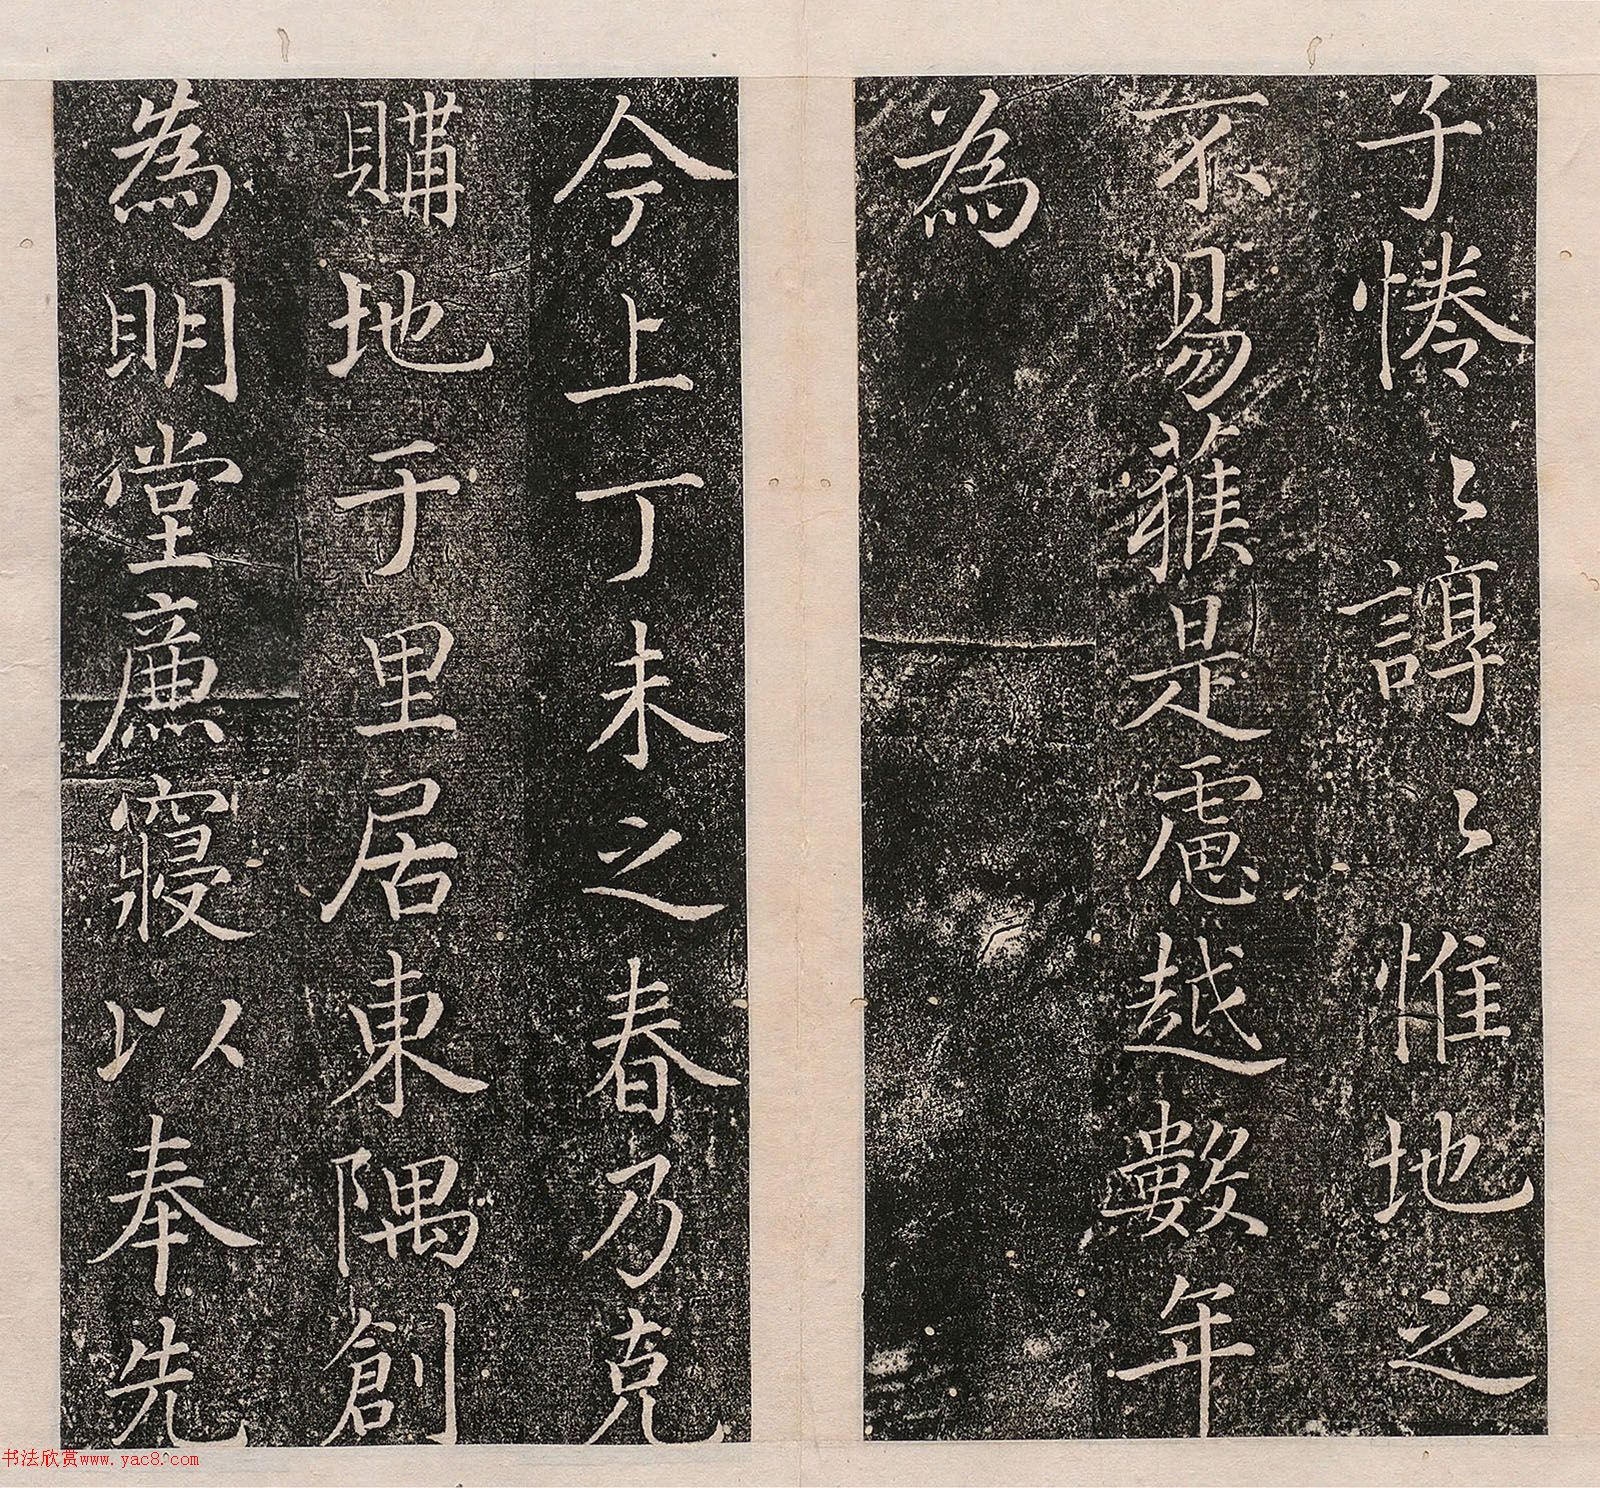 子惓〻諄〻惟地之
不易獲是慮越數年
為
今上丁未之春乃克
購地于里居東隅創
為明堂廉寢以奉先
书法欣赏www.yac8.com